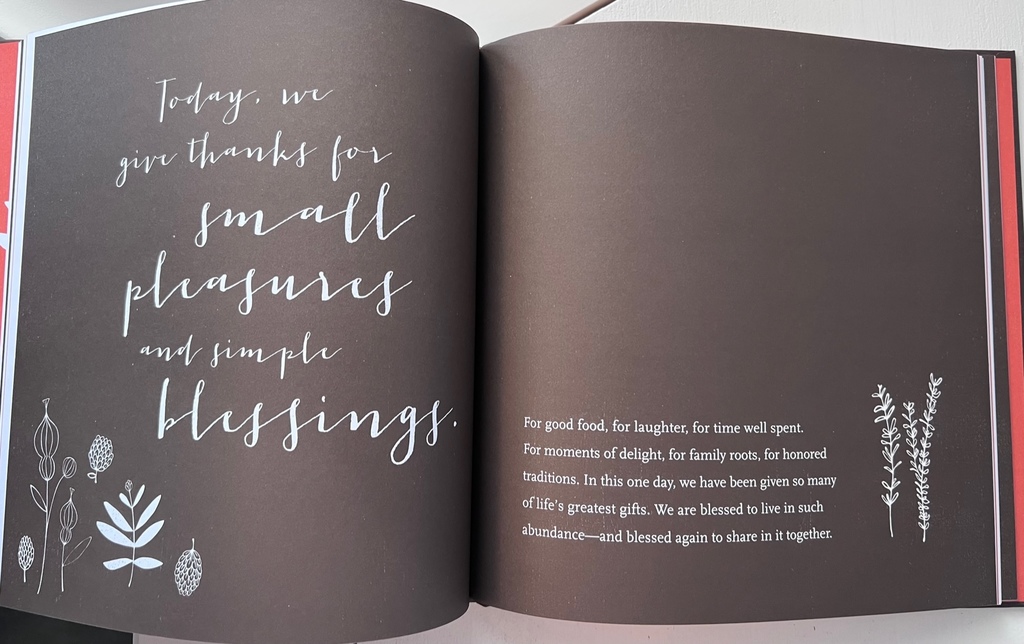 Today, we
give thanks for
small
pleasures
and simple
blessings.
For good food, for laughter, for time well spent.
For moments of delight, for family roots, for honored
traditions. In this one day, we have been given so many
of life's greatest gifts. We are blessed to live in such
abundance—and blessed again to share in it together.